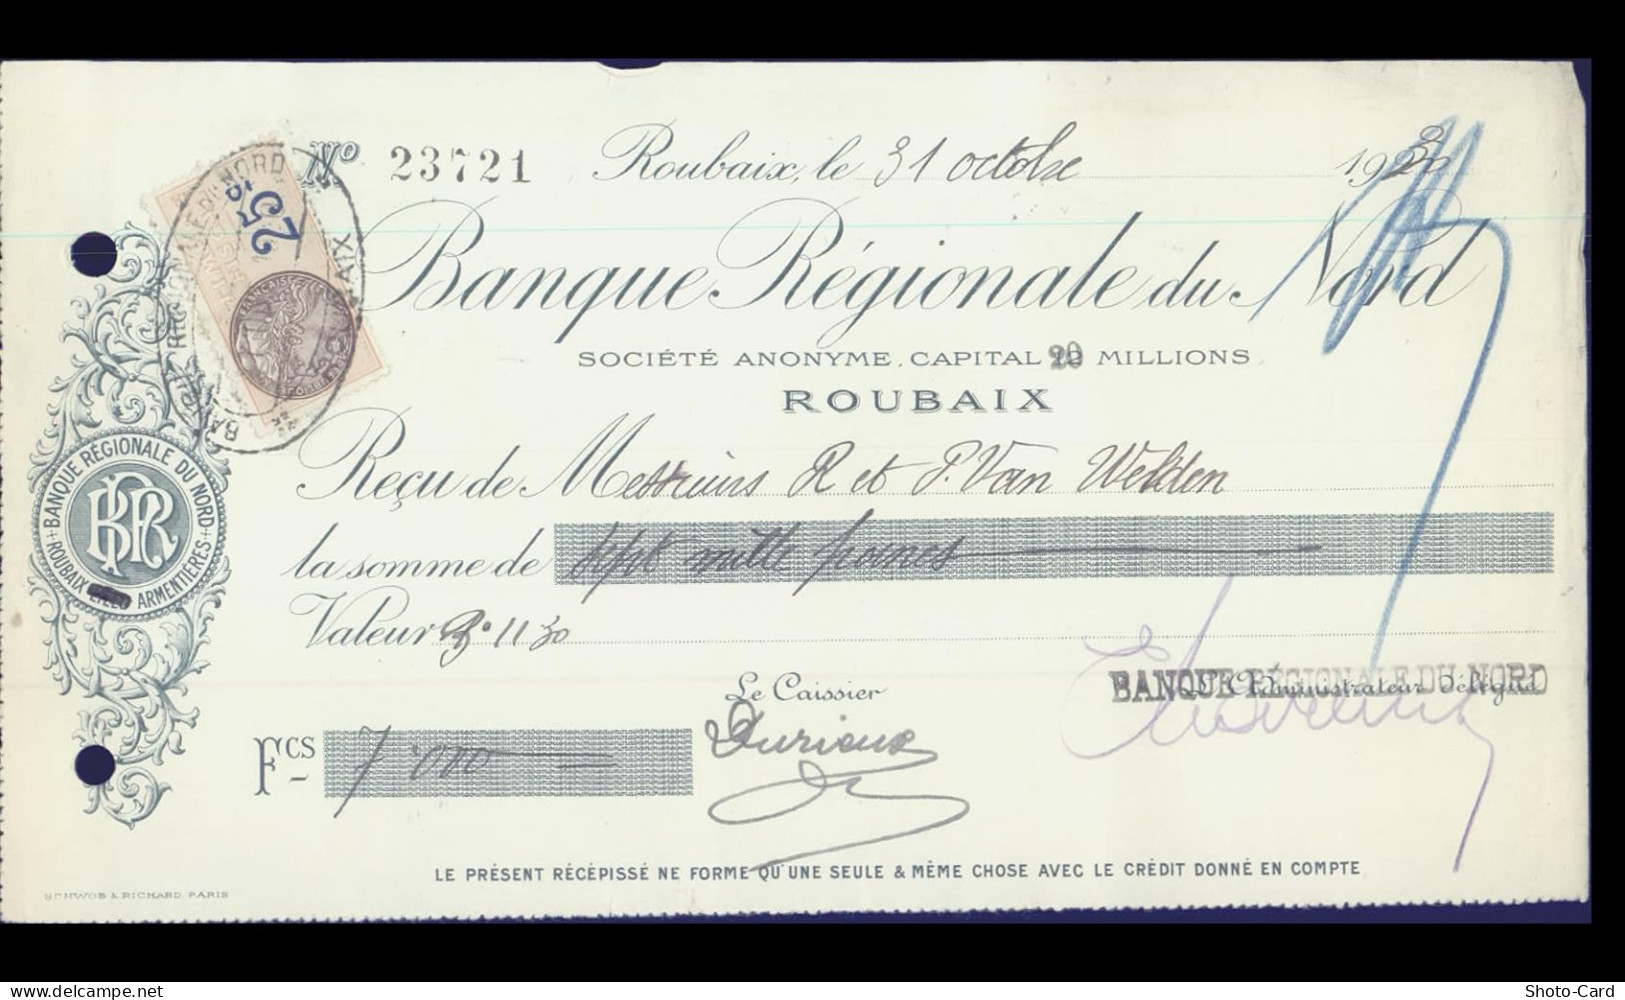 No 23721
Roubaix, le 31 octobre 1930
25 cs
BANQUE RÉGIONALE DU NORD
ROUBAIX
Banque Régionale du Nord
SOCIÉTÉ ANONYME, CAPITAL 20 MILLIONS
ROUBAIX
Reçu de Messieurs R et P. Van Welden
la somme de sept mille francs
Valeur 3.11 30
BANQUE RÉGIONALE DU NORD
ROUBAIX LILLE ARMENTIÈRES
BRN
Le Caissier
L'Administrateur Délégué
BANQUE RÉGIONALE DU NORD
Fcs 7.000
Durieux
LE PRÉSENT RÉCÉPISSÉ NE FORME QU'UNE SEULE & MÊME CHOSE AVEC LE CRÉDIT DONNÉ EN COMPTE
SCHWOB & RICHARD. PARIS
www.delcampe.net
Shoto-Card